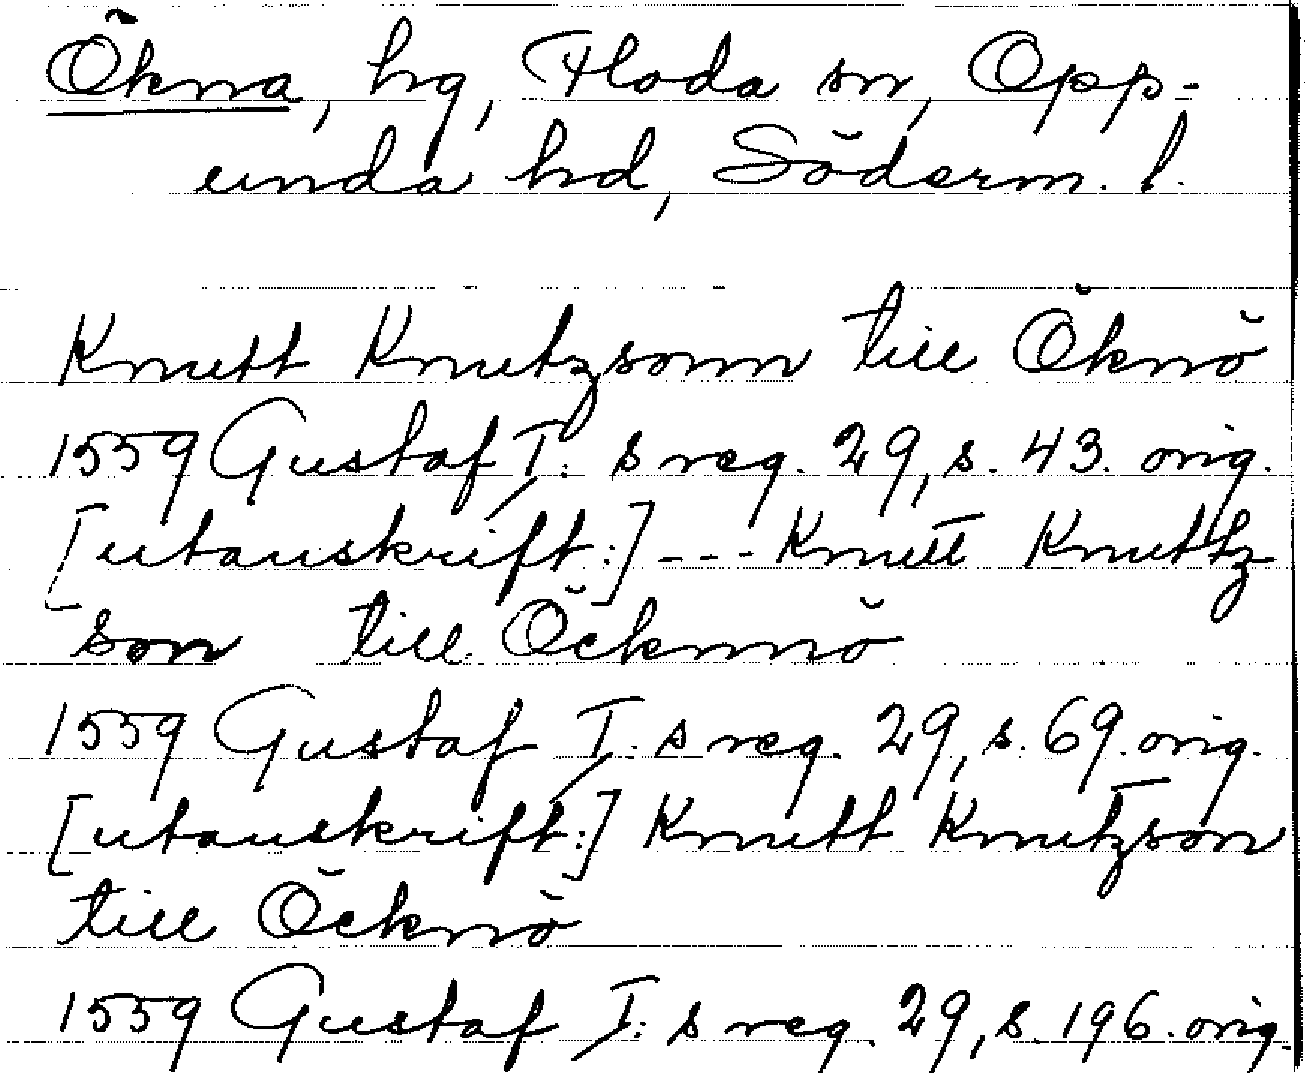 Ökna, hg, Floda sn, Opp-
unda hd, Söderm. l.
Knutt Knutzsonn till Öknö
1559 Gustaf I: s reg. 29, s. 43. orig.
[utanskrift:] --- Knutt Knuttz
son till Öcknnö
1559 Gustaf I: s reg. 29, s. 69. orig.
[utanskrift:] Knutt Knutzson
till Öcknö
1559 Gustaf I: s reg. 29, s. 196. orig.